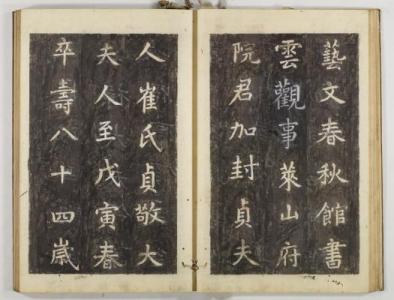 藝文春秋館書
雲觀事萊山府
院君加封貞夫
人崔氏貞敬大
夫人至戊寅春
卒壽八十四歲